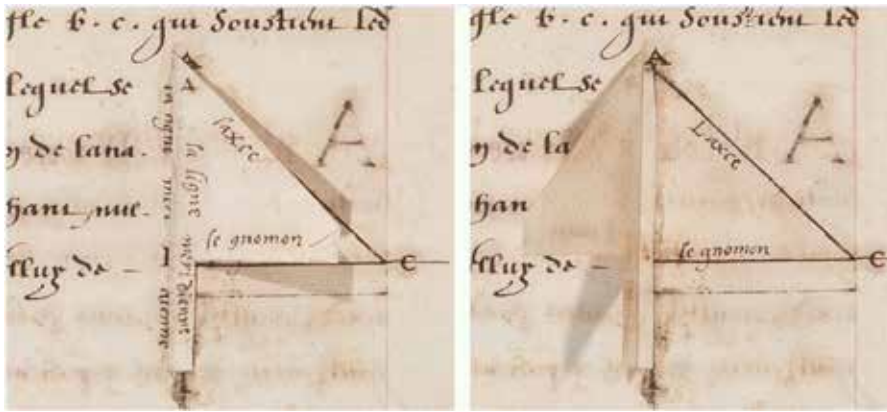 gle b. c. qui soustient led
lequel se
y de lana.
hant nue.
lluy de –
A
A
laxce
la ligne meridienne
le gnomon
C
A
gle b. c. qui soustient led
lequel se
y de la
han
lluy de –
A
Laxce
le gnomon
C
A